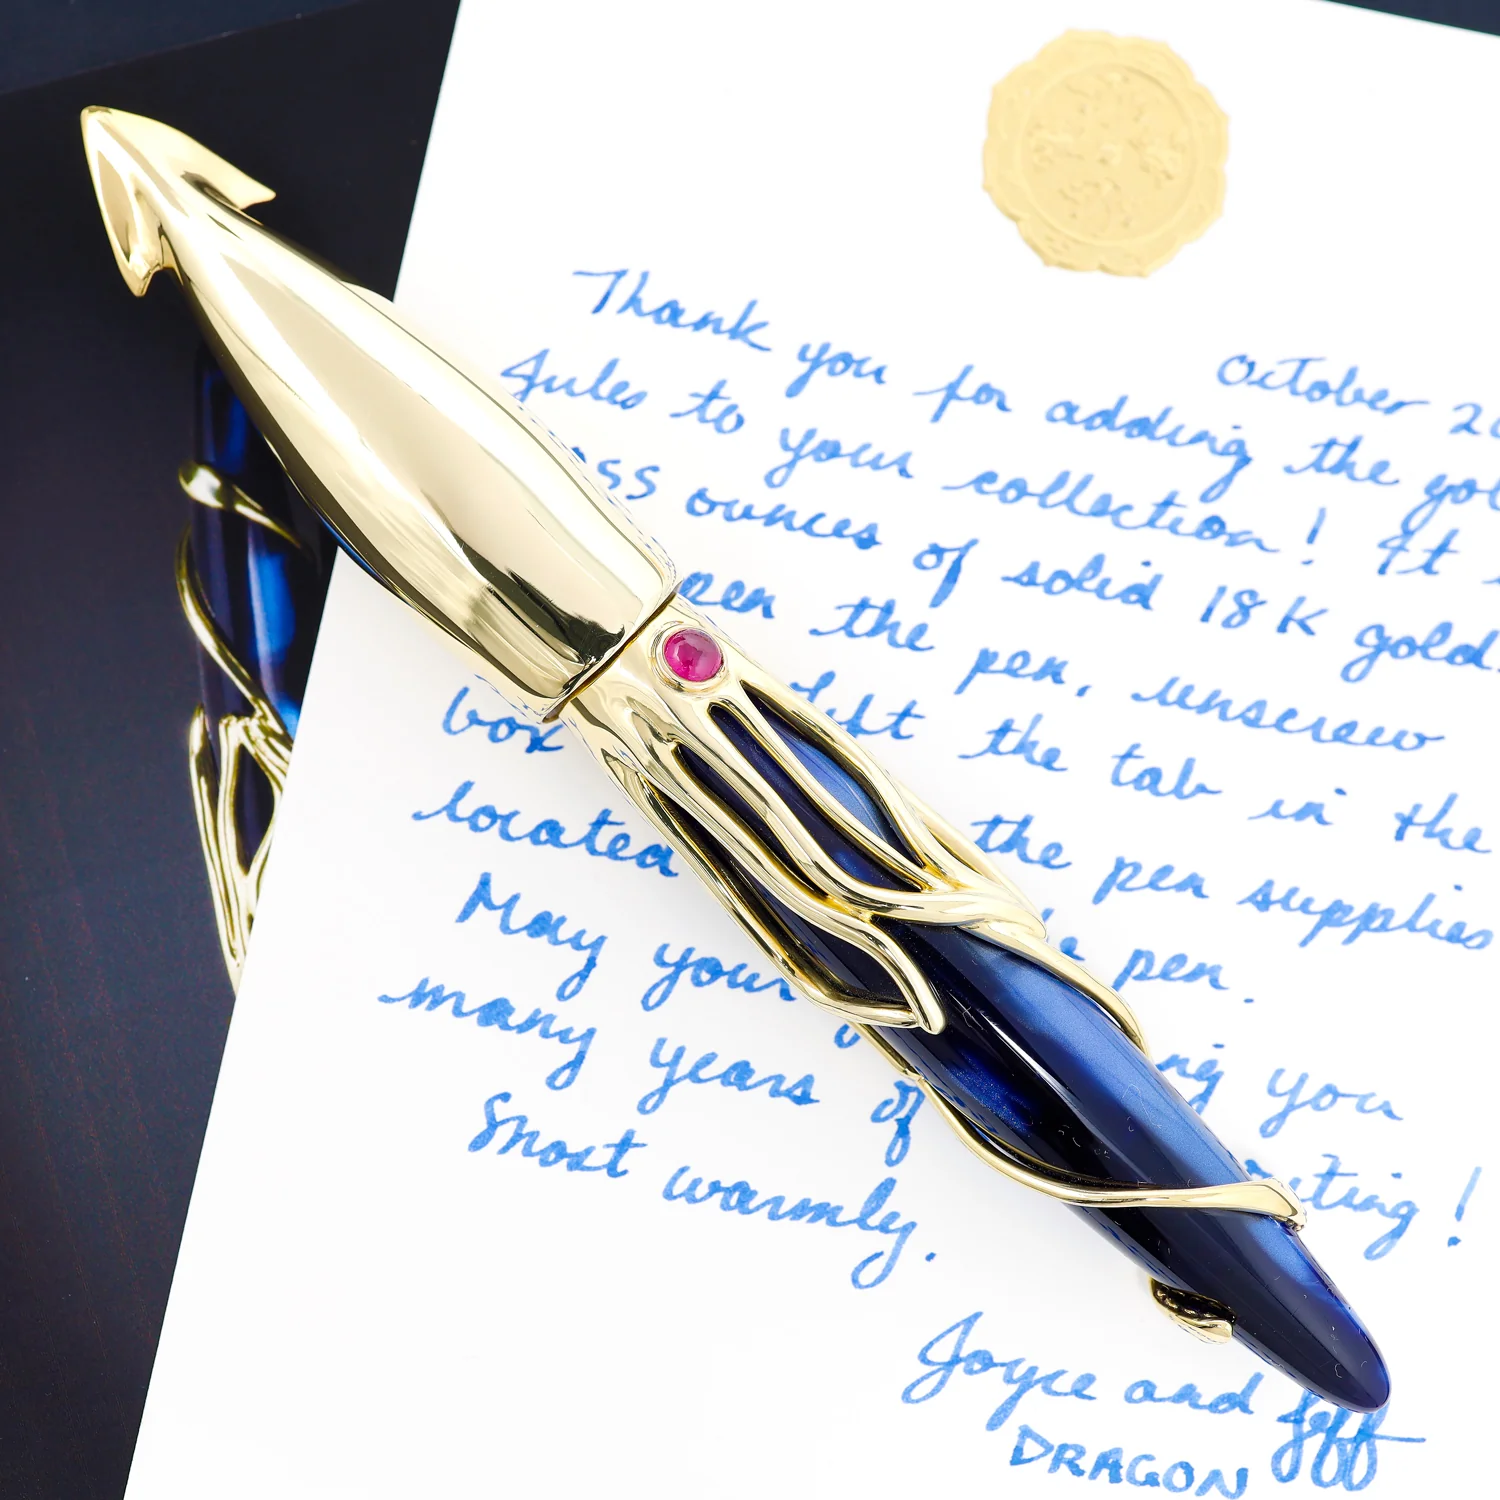 October
Thank you for adding the
Jules to your collection! It
ounces of solid 18K gold.
the pen, unscrew
box lift the tab in the
located the pen supplies
pen.
May your you
many years of
Most warmly.
Joyce and Jeff
DRAGON